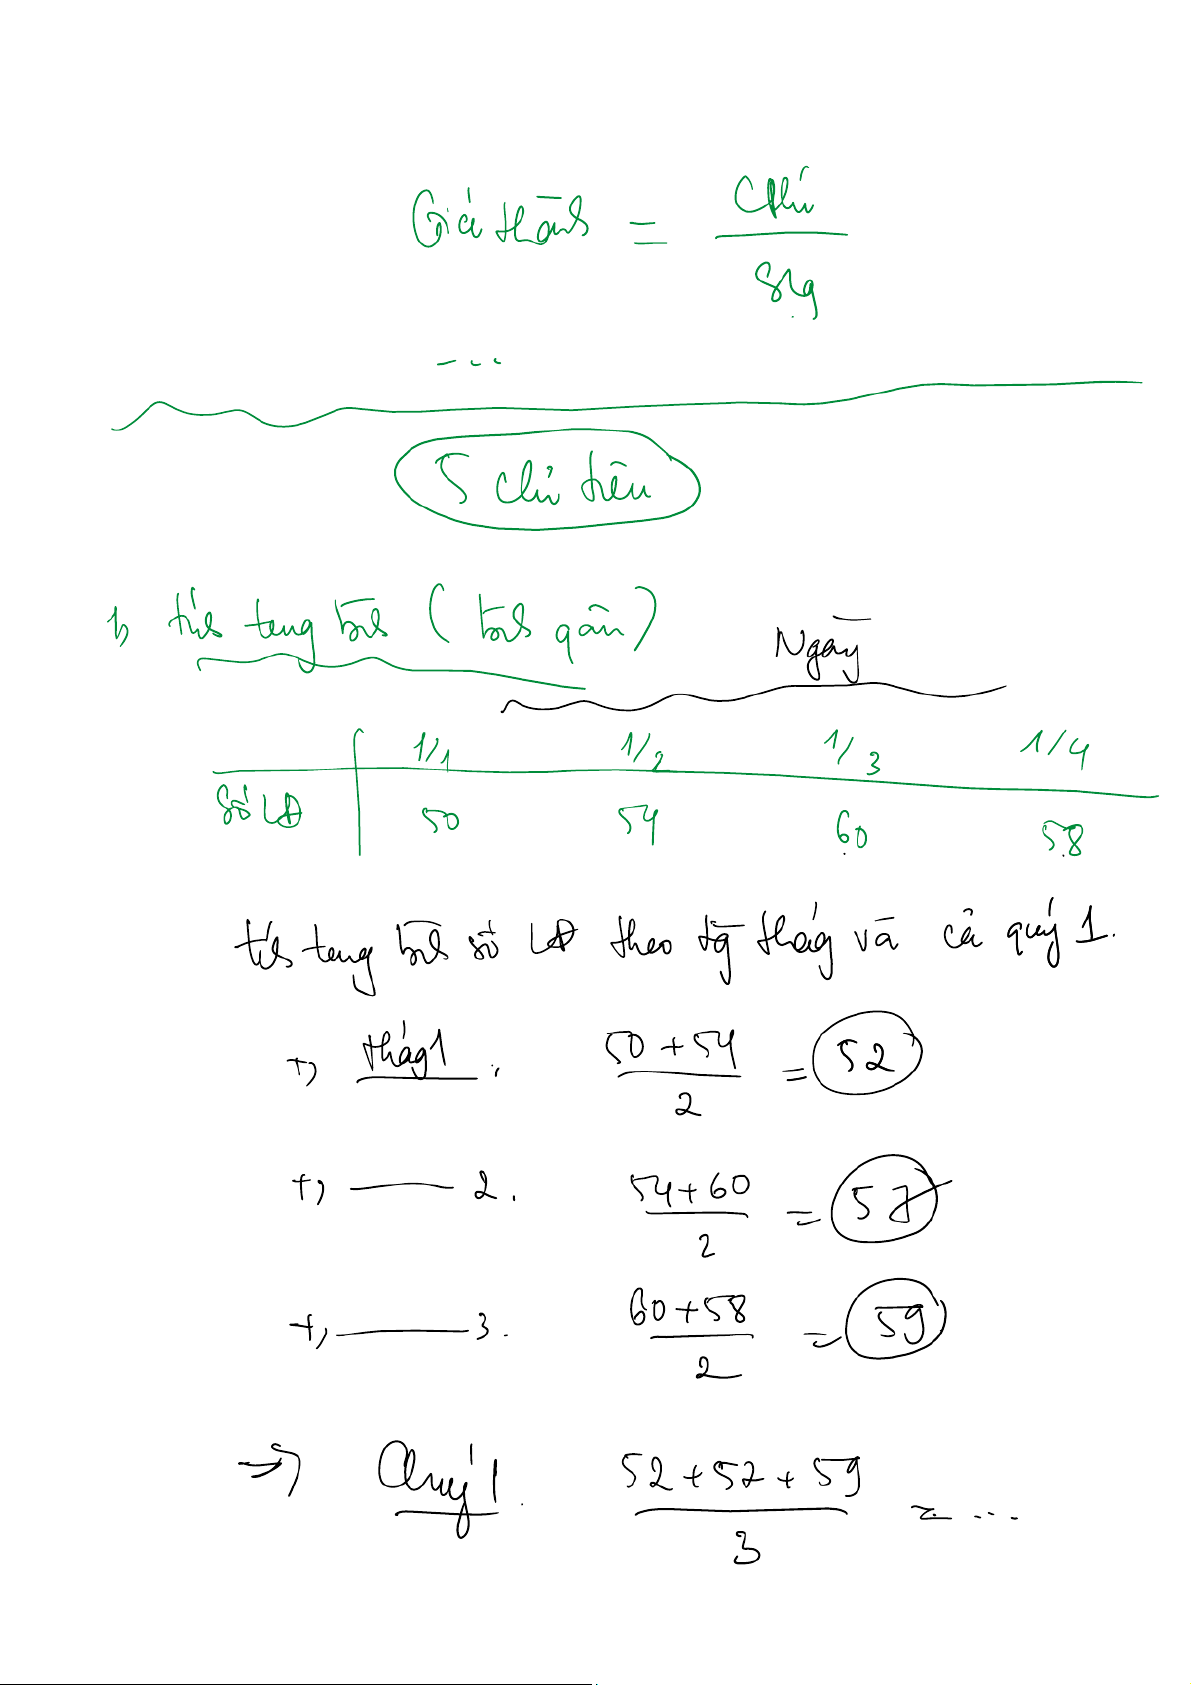 Giá thành = CPhí / SLg
...
5 chỉ tiêu
1, tính trung bình (bình quân)
Ngày
1/1 1/2 1/3 1/4
Số LĐ 50 54 60 58
tính trung bình số LĐ theo từng tháng và cả quý 1.
+, tháng 1. (50 + 54) / 2 = 52
+, —— 2. (54 + 60) / 2 = 57
+, —— 3. (60 + 58) / 2 = 59
=> Quý 1. (52 + 57 + 59) / 3 = ...